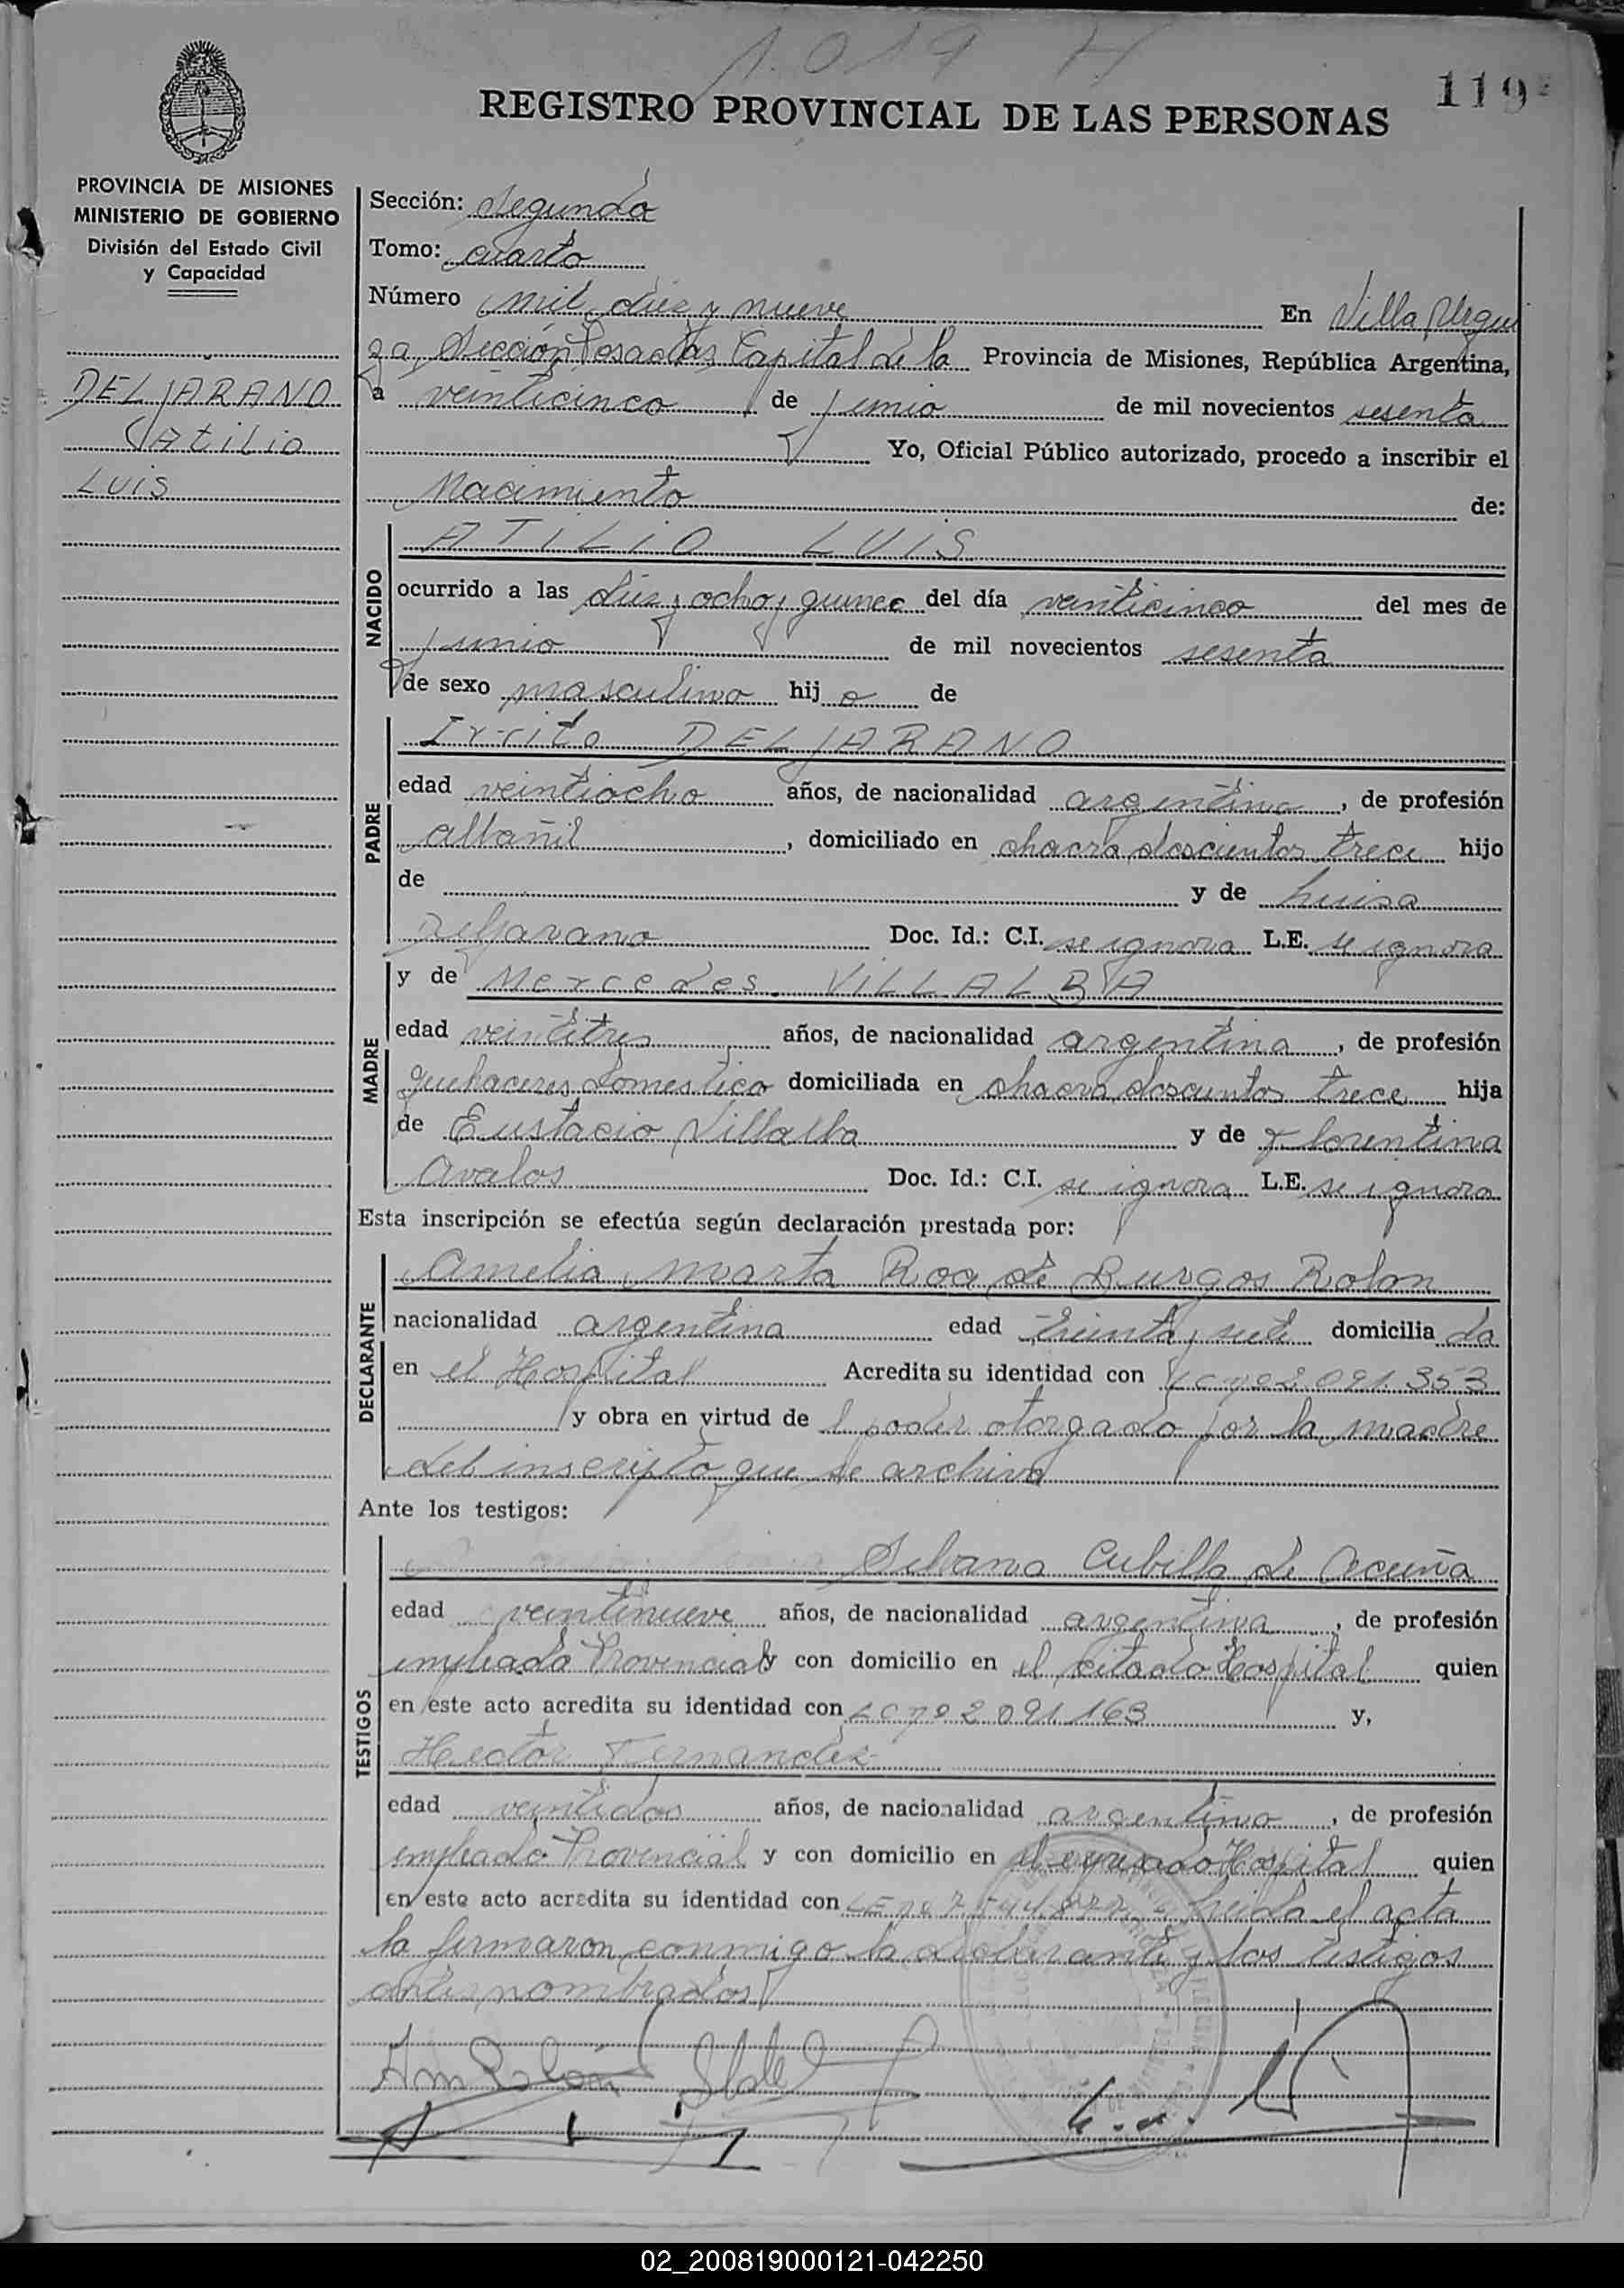 1.019
119
REGISTRO PROVINCIAL DE LAS PERSONAS
PROVINCIA DE MISIONES
MINISTERIO DE GOBIERNO
División del Estado Civil
y Capacidad
DELJARANO
Atilio
LUIS
Sección: Segunda
Tomo: cuarto
Número mil diez y nueve En Villa Urqui
za, Sección Posadas Capital de la Provincia de Misiones, República Argentina,
a veinticinco de junio de mil novecientos sesenta
Yo, Oficial Público autorizado, procedo a inscribir el
Nacimiento de:
NACIDO
ATILIO LUIS
ocurrido a las diez y ocho y quince del día veinticinco del mes de
junio de mil novecientos sesenta
de sexo masculino hijo de
PADRE
Irrito DELJARANO
edad veintiocho años, de nacionalidad argentina, de profesión
albañil, domiciliado en chacra doscientos trece hijo
de y de Luisa
Deljarano Doc. Id.: C.I. se ignora L.E. se ignora
MADRE
y de Mercedes VILLALBA
edad veintitres años, de nacionalidad argentina, de profesión
quehaceres domestico domiciliada en chacra doscientos trece hija
de Eustacio Villalba y de Florentina
Avalos Doc. Id.: C.I. se ignora L.E. se ignora
Esta inscripción se efectúa según declaración prestada por:
DECLARANTE
Amelia Marta Roa de Burgos Rolon
nacionalidad argentina edad treinta y siete domiciliada
en el Hospital Acredita su identidad con Lc nº 2 091 353
y obra en virtud de l poder otorgado por la madre
del inscripto que se archiva
Ante los testigos:
TESTIGOS
Silvana Cubilla de Acuña
edad veintinueve años, de nacionalidad argentina, de profesión
empleada Provincial y con domicilio en el citado Hospital quien
en este acto acredita su identidad con LC nº 2 091 163 y,
Hector Fernandez
edad veintidos años, de nacionalidad argentino, de profesión
empleado Provincial y con domicilio en el expresado Hospital quien
en este acto acredita su identidad con LE nº Leida el acta
la firmaron conmigo la declarante y los testigos
antes nombrados
Am Rolón
02_200819000121-042250